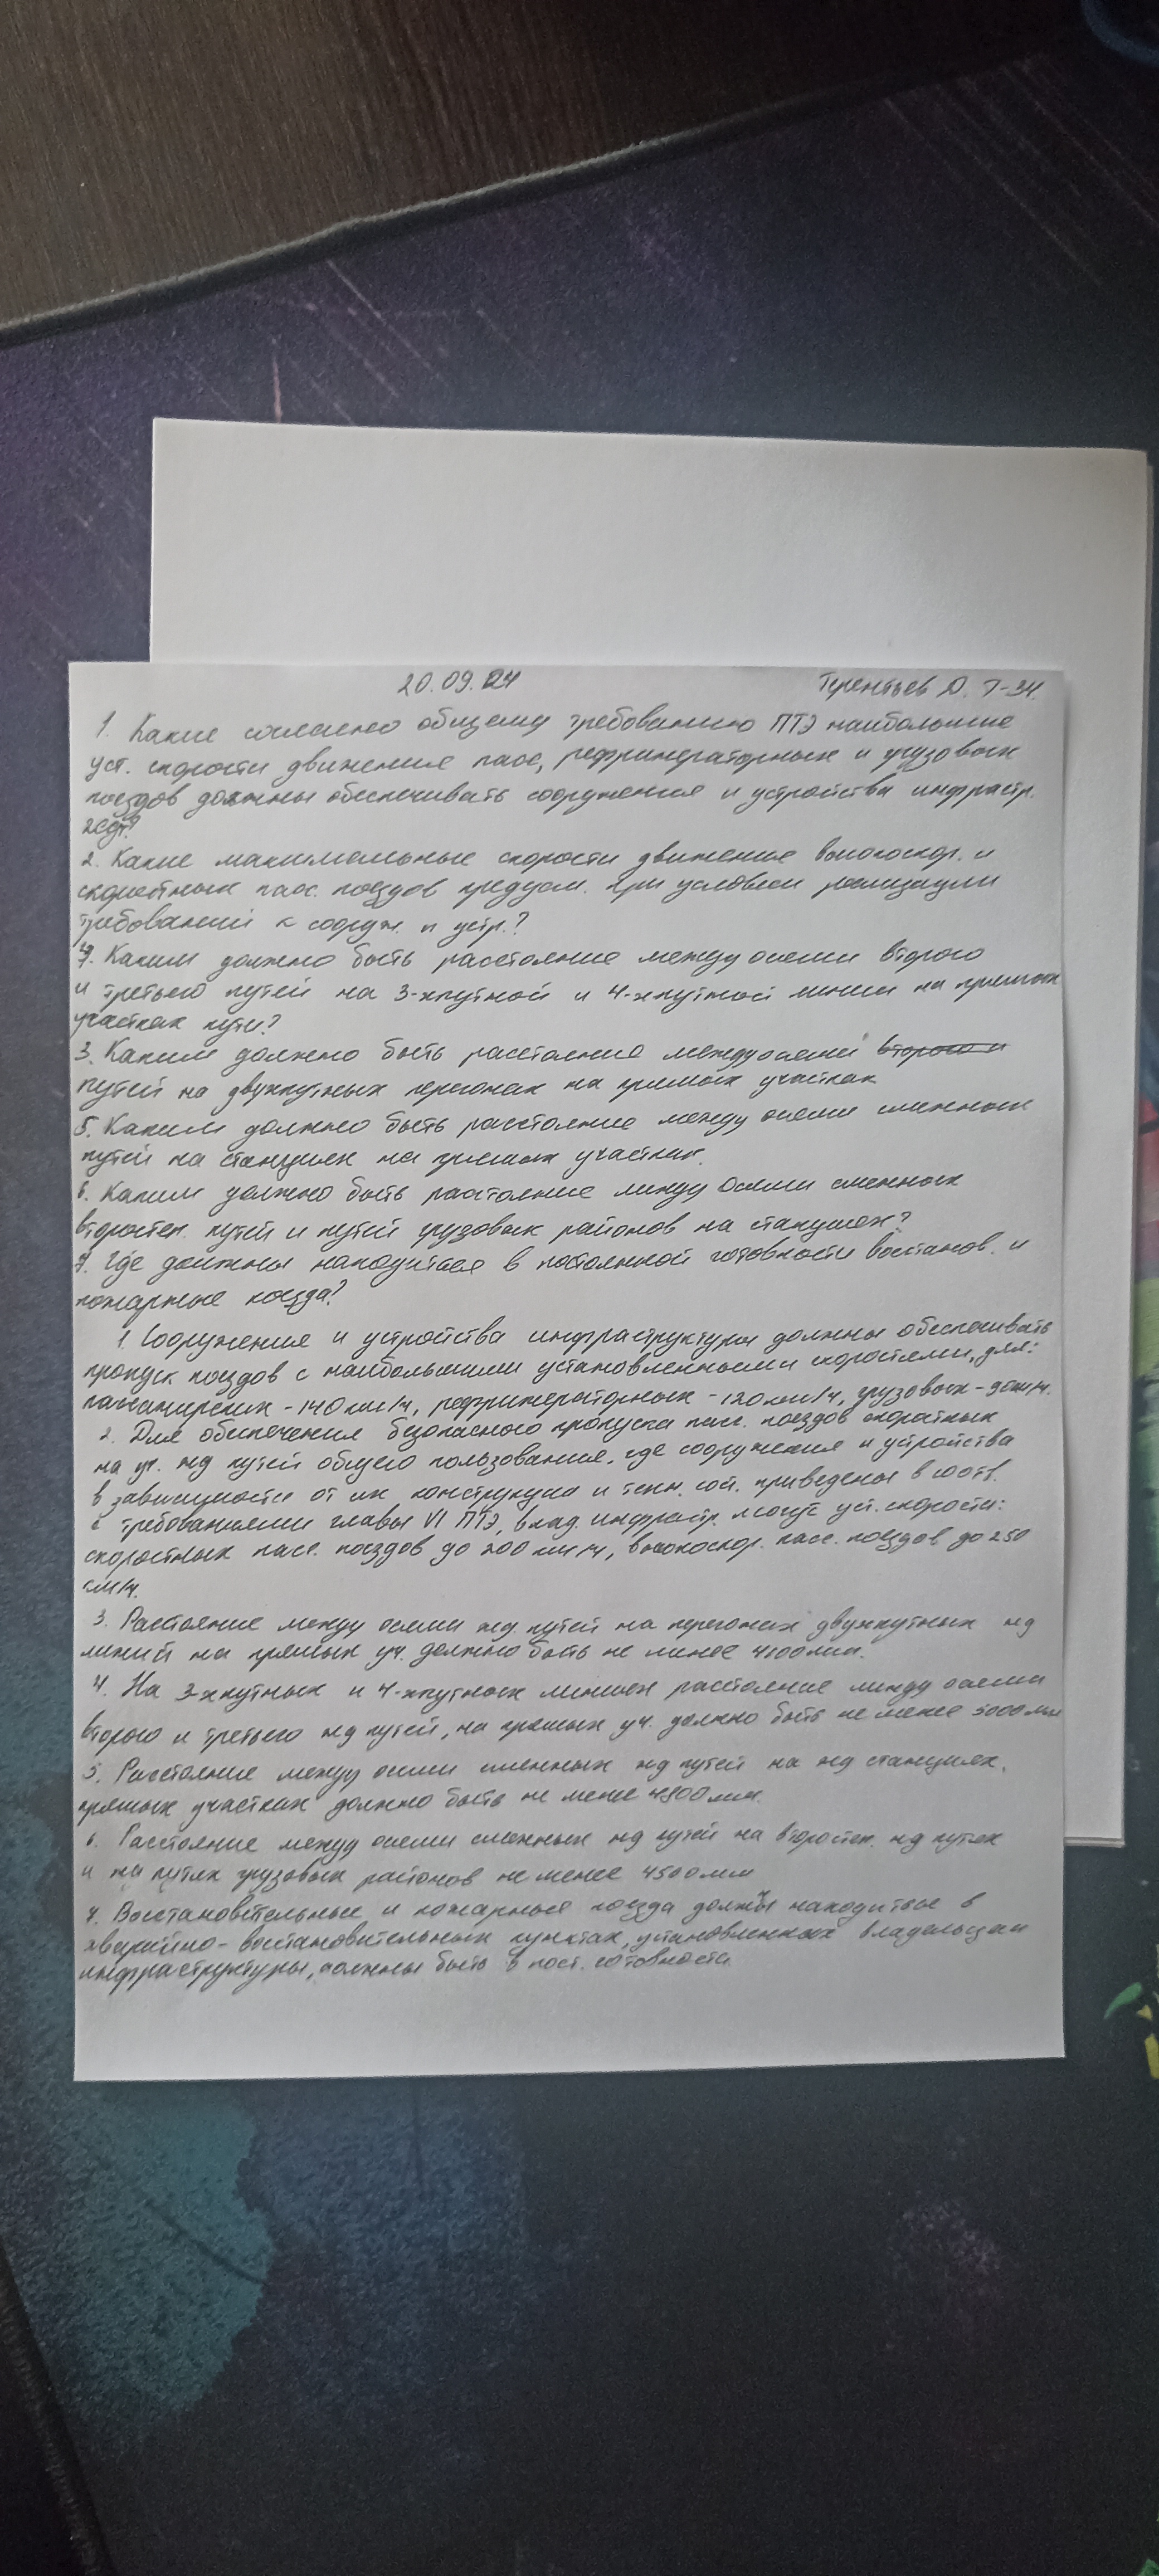 20.09.24 Терентьев Д. Т-34.
1. Какие согласно общему требованию ПТЭ наибольшие
уст. скорости движения пасс, рефрижераторных и грузовых
поездов должны обеспечивать сооружения и устройства инфрастр.
2. Какие максимальные скорости движение высокоскор. и
скоростных пасс. поездов предусм. при условии
требований к сооруж. и устр.?
4. Каким должно быть расстояние между осями второго
и третьего путей на 3-хпутной и 4-хпутной линии на прямых
участках пути?
3. Каким должно быть расстояние между осями второго и
путей на двухпутных перегонах на прямых участках
5. Каким должно быть расстояние между осями смежных
путей на станциях на прямых участках.
6. Каким должно быть расстояние между осями смежных
второстеп. путей и путей грузовых районов на станциях?
7. Где должны находиться в постоянной готовности востанов. и
пожарные поезда?
1 Сооружения и устройства инфраструктуры должны обеспечивать
пропуск поездов с наибольшими установленными скоростями, для:
пассажирских - 140 км/ч, рефрижераторных - 120 км/ч, грузовых -
2. Для обеспечения безопасного пропуска пасс. поездов скоростных
на уч. жд путей общего пользования, где сооружения и устройства
в зависимости от их конструкции и техн. сост. приведены в соотв.
с требованиями главы VI ПТЭ, влад. инфрастр. могут уст. скорости:
скоростных пасс. поездов до 200 км/ч, высокоскор. пасс. поездов до 250
км/ч.
3. Расстояние между осями жд. путей на перегонах двухпутных жд
линий на прямых уч. должно быть не менее 4100 мм.
4. На 3-хпутных и 4-хпутных линиях расстояние между осями
второго и третьего жд путей, на прямых уч. должно быть не менее 5000 мм
5. Расстояние между осями смежных жд путей на жд станциях,
прямых участках должно быть не мене 4800 мм.
6. Расстояние между осями смежных жд путей на второстеп. жд путях
и на путях грузовых районов не менее 4500 мм
7. Восстановительные и пожарные поезда должны находиться в
аварийно-восстановительных пунктах, установленных владельцем
инфраструктуры, должны быть в пост. готовности.